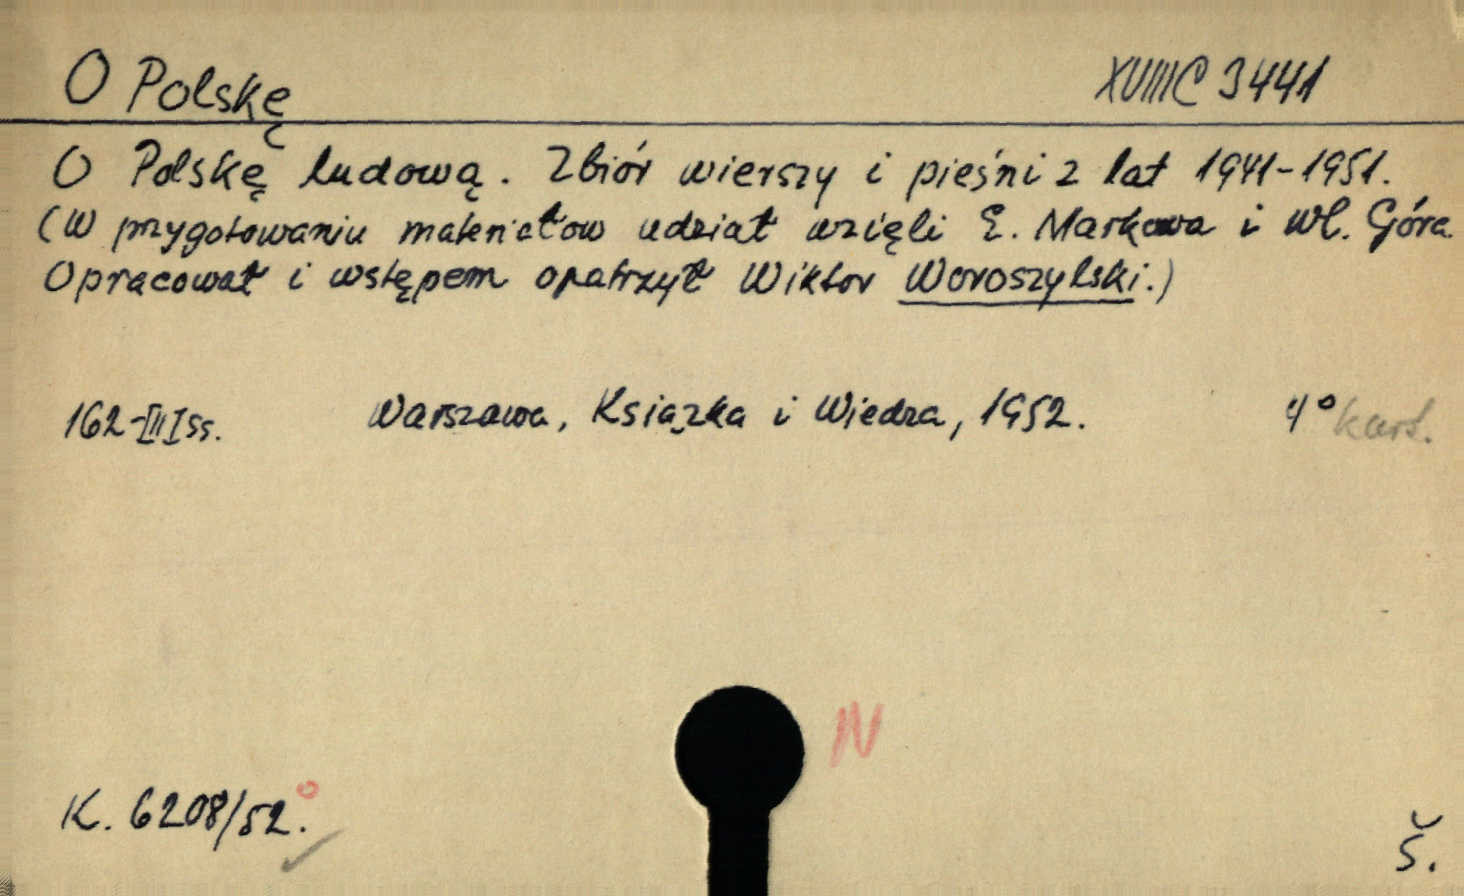 O Polskę XVIIIC 3441
O Polskę ludową. Zbiór wierszy i pieśni z lat 1941-1951.
(W przygotowaniu materiałow udział wzięli E. Markowa i Wł. Góra.
Opracował i wstępem opatrzył Wiktor Woroszylski.)
162-[III] ss. Warszawa, Książka i Wiedza, 1952. 4° kart.
N
K. 6208/52.
Š.